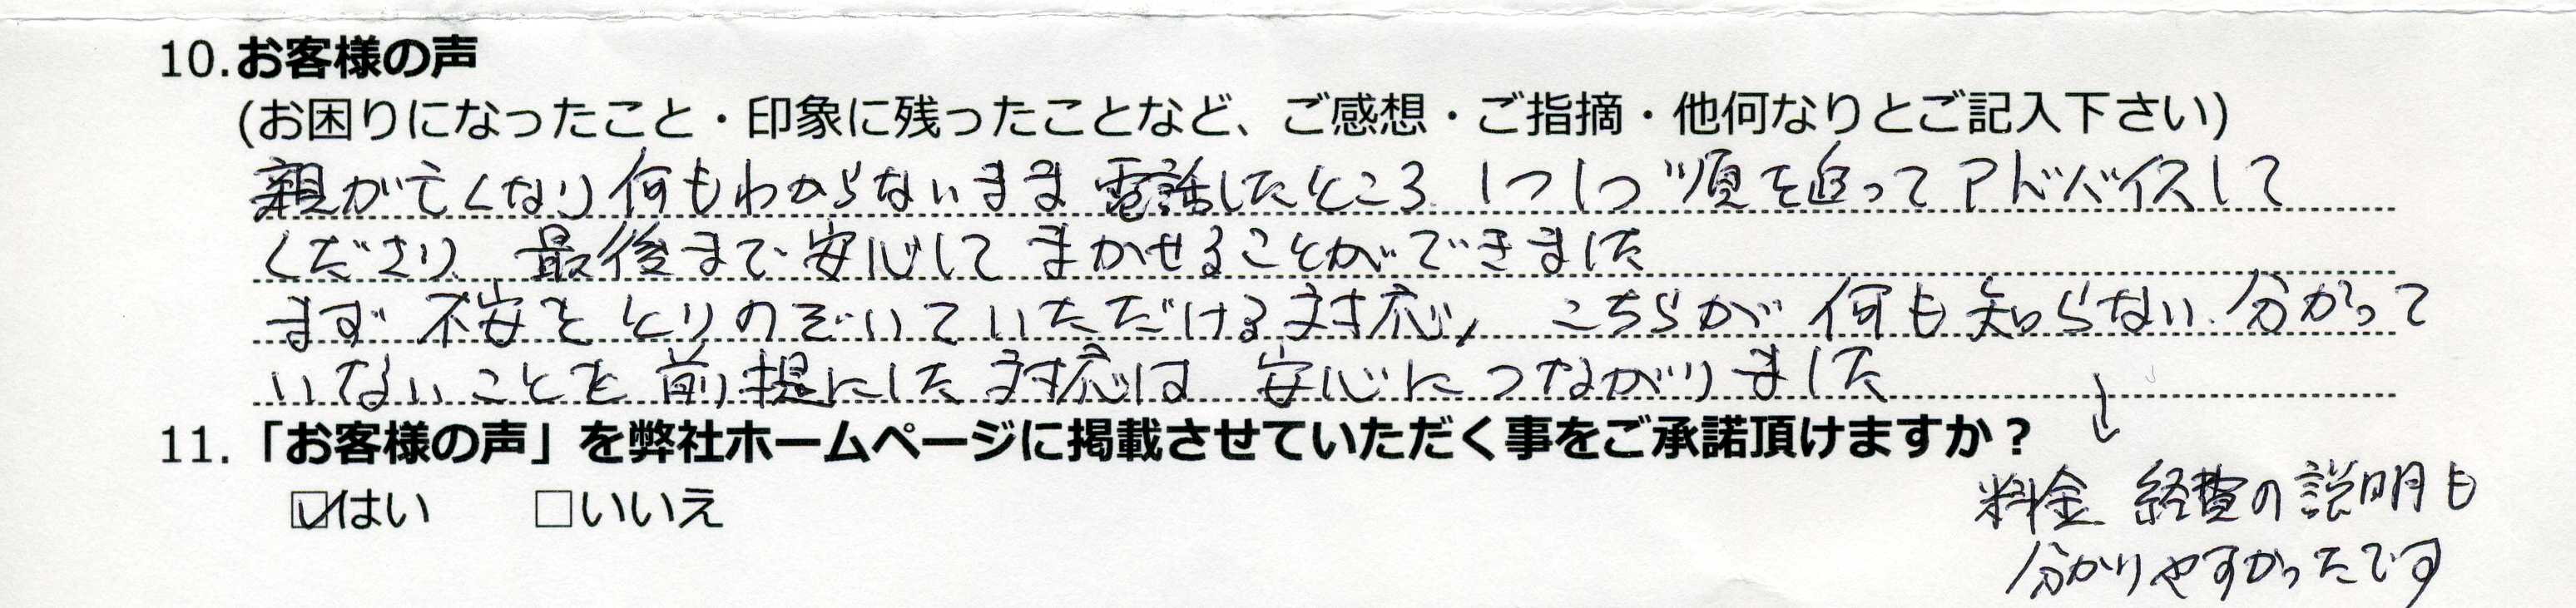 10.お客様の声
(お困りになったこと・印象に残ったことなど、ご感想・ご指摘・他何なりとご記入下さい)
親が亡くなり何もわからないまま電話したところ 1つ1つ順を追ってアドバイスして
くださり、最後まで安心してまかせることができました
まず不安をとりのぞいていただける対応、こちらが何も知らない、分かって
いないことを前提にした対応は安心につながりました
↓
11.「お客様の声」を弊社ホームページに掲載させていただく事をご承諾頂けますか？
☑はい □いいえ
料金、経費の説明も
分かりやすかったです